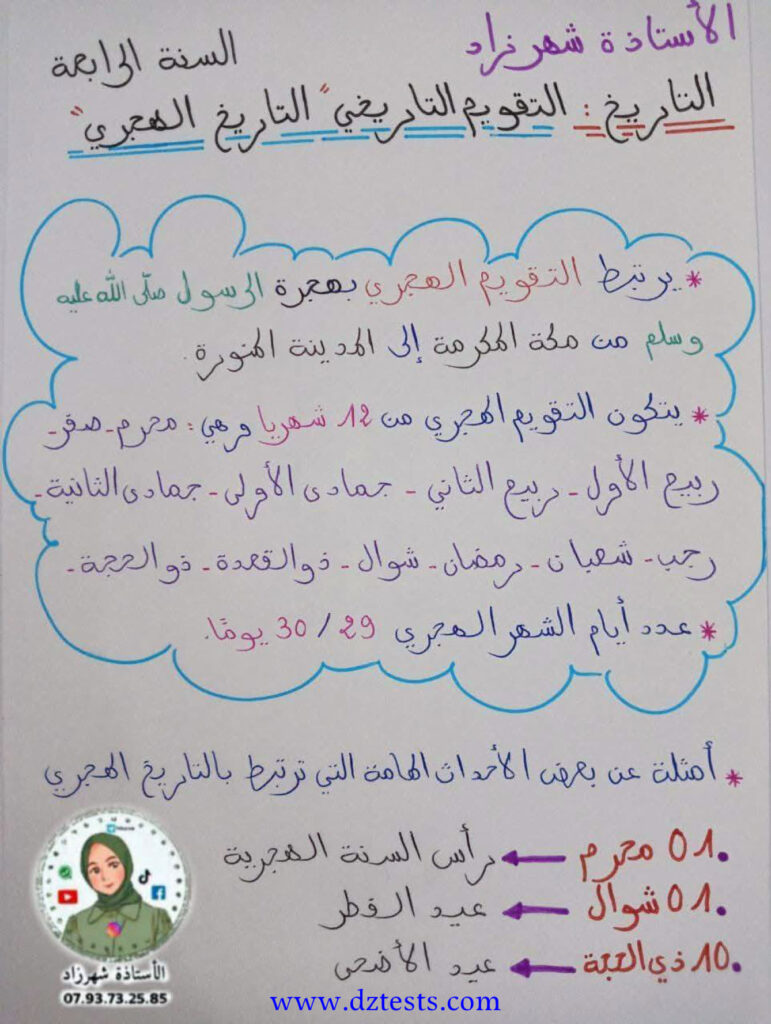 الأستاذة شهرزاد
السنة الرابعة
التاريخ : التقويم التاريخي "التاريخ الهجري"
* يرتبط التقويم الهجري بهجرة الرسول صلّى الله عليه
وسلم من مكة المكرمة إلى المدينة المنورة.
* يتكون التقويم الهجري من 12 شهريا وهي : محرم - صفر -
ربيع الأول - ربيع الثاني - جمادى الأولى - جمادى الثانية -
رجب - شعبان - رمضان - شوال - ذو القعدة - ذو الحجة -
* عدد أيام الشهر الهجري 29 / 30 يومًا.
* أمثلة عن بعض الأحداث الهامة التي ترتبط بالتاريخ الهجري
.01 محرم ← رأس السنة الهجرية
.01 شوال ← عيد الفطر
.10 ذي الحجة ← عيد الأضحى
الأستاذة شهرزاد
07.93.73.25.85
www.dztests.com